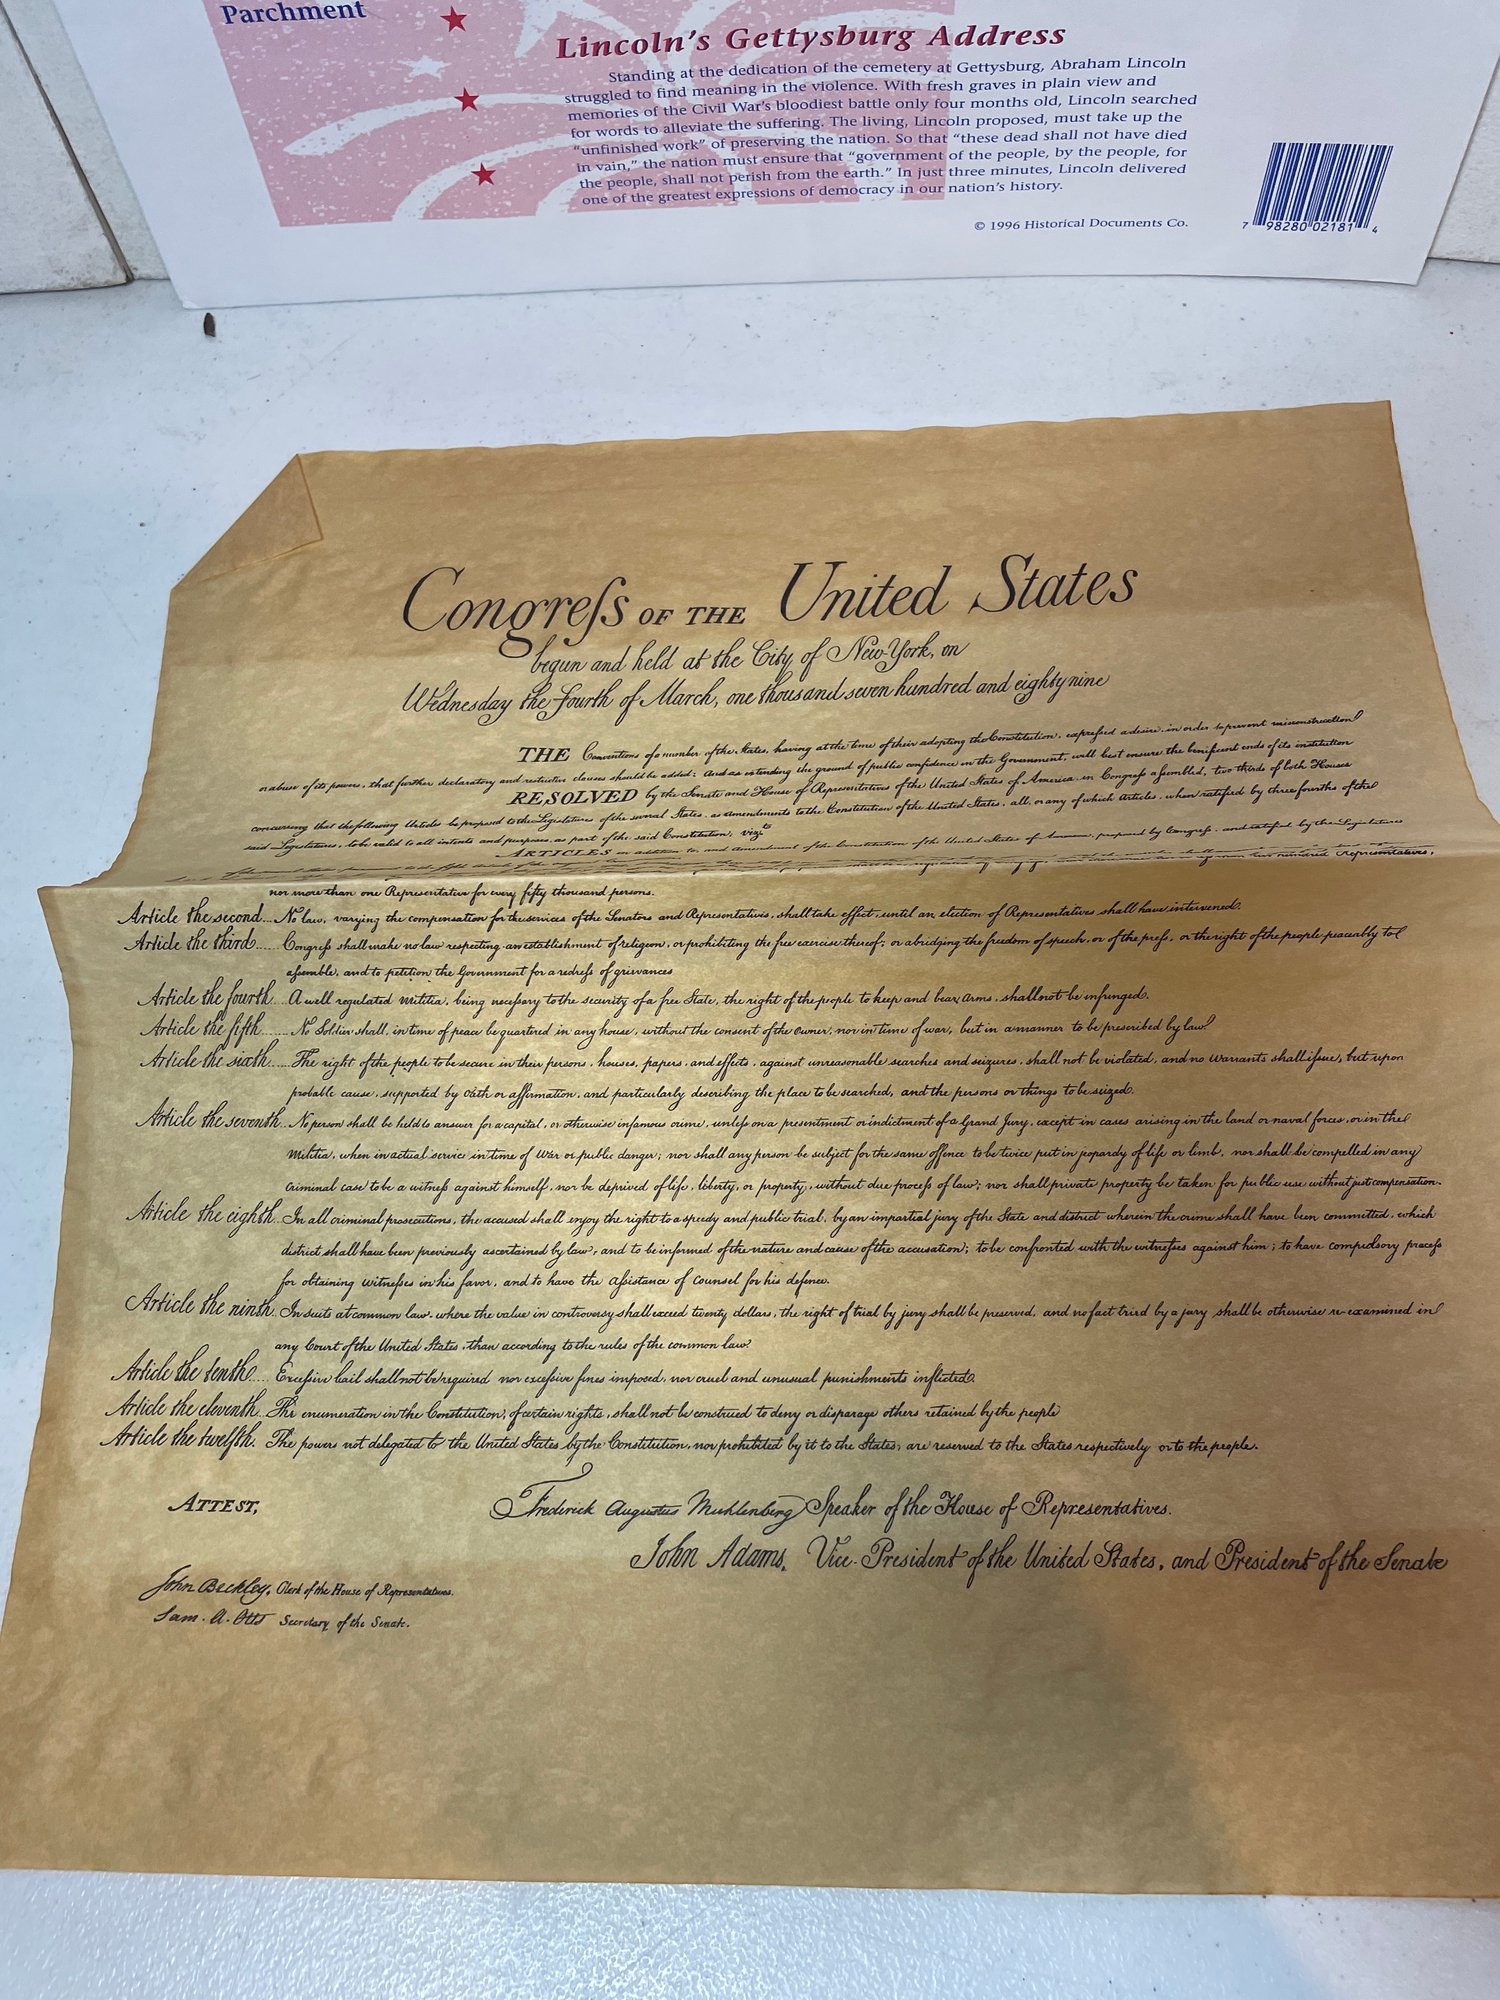 Parchment
Lincoln's Gettysburg Address
Standing at the dedication of the cemetery at Gettysburg, Abraham Lincoln
struggled to find meaning in the violence. With fresh graves in plain view and
memories of the Civil War's bloodiest battle only four months old, Lincoln searched
for words to alleviate the suffering. The living, Lincoln proposed, must take up the
"unfinished work" of preserving the nation. So that "these dead shall not have died
in vain," the nation must ensure that "government of the people, by the people, for
the people, shall not perish from the earth." In just three minutes, Lincoln delivered
one of the greatest expressions of democracy in our nation's history.
© 1996 Historical Documents Co.
7 98280 02181 4
Congreſs OF THE United States
begun and held at the City of New-York, on
Wednesday the Fourth of March, one thousand seven hundred and eighty nine
THE Conventions of a number of the States, having at the time of their adopting the Constitution, expreſsed a desire, in order to prevent misconstruction
or abuse of its powers, that further declaratory and restrictive clauses should be added: And as extending the ground of public confidence in the Government, will best ensure the beneficent ends of its institution
RESOLVED by the Senate and House of Representatives of the United States of America in Congreſs aſsembled, two thirds of both Houses
concurring that the following Articles be proposed to the Legislatures of the several States, as amendments to the Constitution of the United States, all, or any of which Articles, when ratified by three fourths of the
said Legislatures, to be valid to all intents and purposes, as part of the said Constitution, vizt
ARTICLES in addition to, and Amendment of the Constitution of the United States of America, proposed by Congreſs, and ratified by the Legislatures
hundred Representatives,
nor more than one Representative for every fifty thousand persons.
Article the second.... No law, varying the compensation for the services of the Senators and Representatives, shall take effect, until an election of Representatives shall have intervened.
Article the third..... Congreſs shall make no law respecting an establishment of religion, or prohibiting the free exercise thereof; or abridging the freedom of speech, or of the preſs, or the right of the people peaceably to
aſsemble, and to petition the Government for a redreſs of grievances
Article the fourth... A well regulated Militia, being neceſsary to the security of a free State, the right of the people to keep and bear Arms, shall not be infringed.
Article the fifth...... No Soldier shall, in time of peace be quartered in any house, without the consent of the Owner, nor in time of war, but in a manner to be prescribed by law.
Article the sixth...... The right of the people to be secure in their persons, houses, papers, and effects, against unreasonable searches and seizures, shall not be violated, and no Warrants shall iſsue, but upon
probable cause, supported by Oath or affirmation, and particularly describing the place to be searched, and the persons or things to be seized.
Article the seventh... No person shall be held to answer for a capital, or otherwise infamous crime, unleſs on a presentment or indictment of a Grand Jury, except in cases arising in the land or naval forces, or in the
Militia, when in actual service in time of War or public danger; nor shall any person be subject for the same offence to be twice put in jeopardy of life or limb, nor shall be compelled in any
criminal case to be a witneſs against himself, nor be deprived of life, liberty, or property, without due proceſs of law; nor shall private property be taken for public use without just compensation.
Article the eighth... In all criminal prosecutions, the accused shall enjoy the right to a speedy and public trial, by an impartial jury of the State and district wherein the crime shall have been committed, which
district shall have been previously ascertained by law, and to be informed of the nature and cause of the accusation; to be confronted with the witneſses against him; to have compulsory proceſs
for obtaining witneſses in his favor, and to have the aſsistance of counsel for his defence.
Article the ninth.. In suits at common law, where the value in controversy shall exceed twenty dollars, the right of trial by jury shall be preserved, and no fact tried by a jury shall be otherwise re-examined in
any Court of the United States, than according to the rules of the common law.
Article the tenth..... Exceſsive bail shall not be required nor exceſsive fines imposed, nor cruel and unusual punishments inflicted.
Article the eleventh.. The enumeration in the Constitution, of certain rights, shall not be construed to deny or disparage others retained by the people
Article the twelfth. The powers not delegated to the United States by the Constitution, nor prohibited by it to the States, are reserved to the States respectively or to the people.
ATTEST,
Frederick Augustus Muhlenberg Speaker of the House of Representatives.
John Adams, Vice-President of the United States, and President of the Senate
John Beckley, Clerk of the House of Representatives.
Sam. A. Otis Secretary of the Senate.